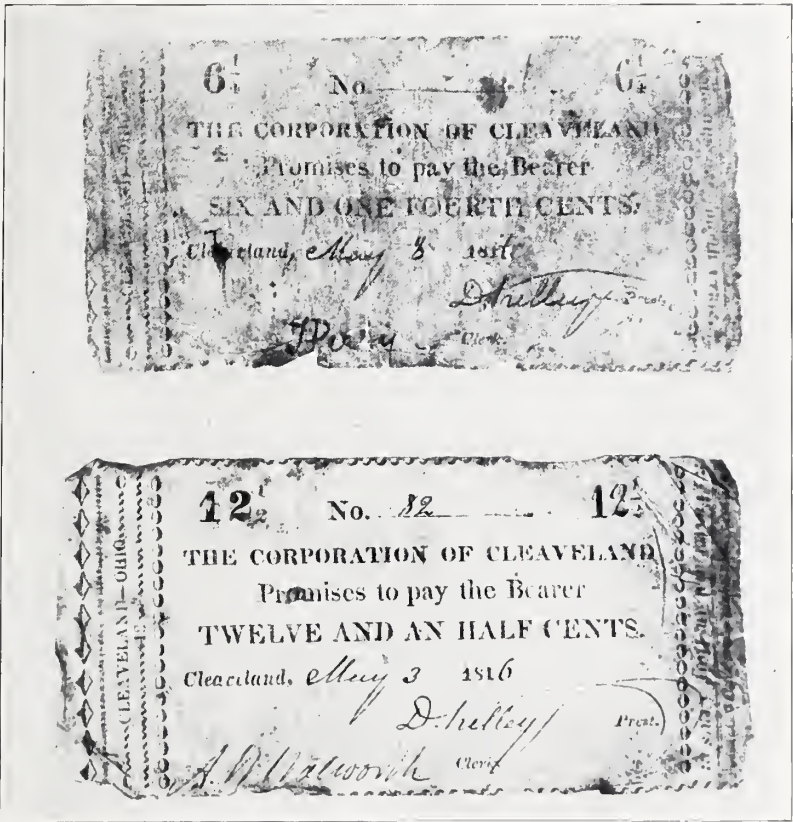 6¼ No. 6¼
THE CORPORATION OF CLEAVELAND
Promises to pay the Bearer
SIX AND ONE FOURTH CENTS.
Cleaveland, May 8 1816
D. Kelley Prest.
Clerk.
12½ No. 82 12½
THE CORPORATION OF CLEAVELAND
Promises to pay the Bearer
TWELVE AND AN HALF CENTS.
Cleaveland, May 3 1816
D. Kelley Prest.
A. W. Walworth Clerk
CLEAVELAND—OHIO